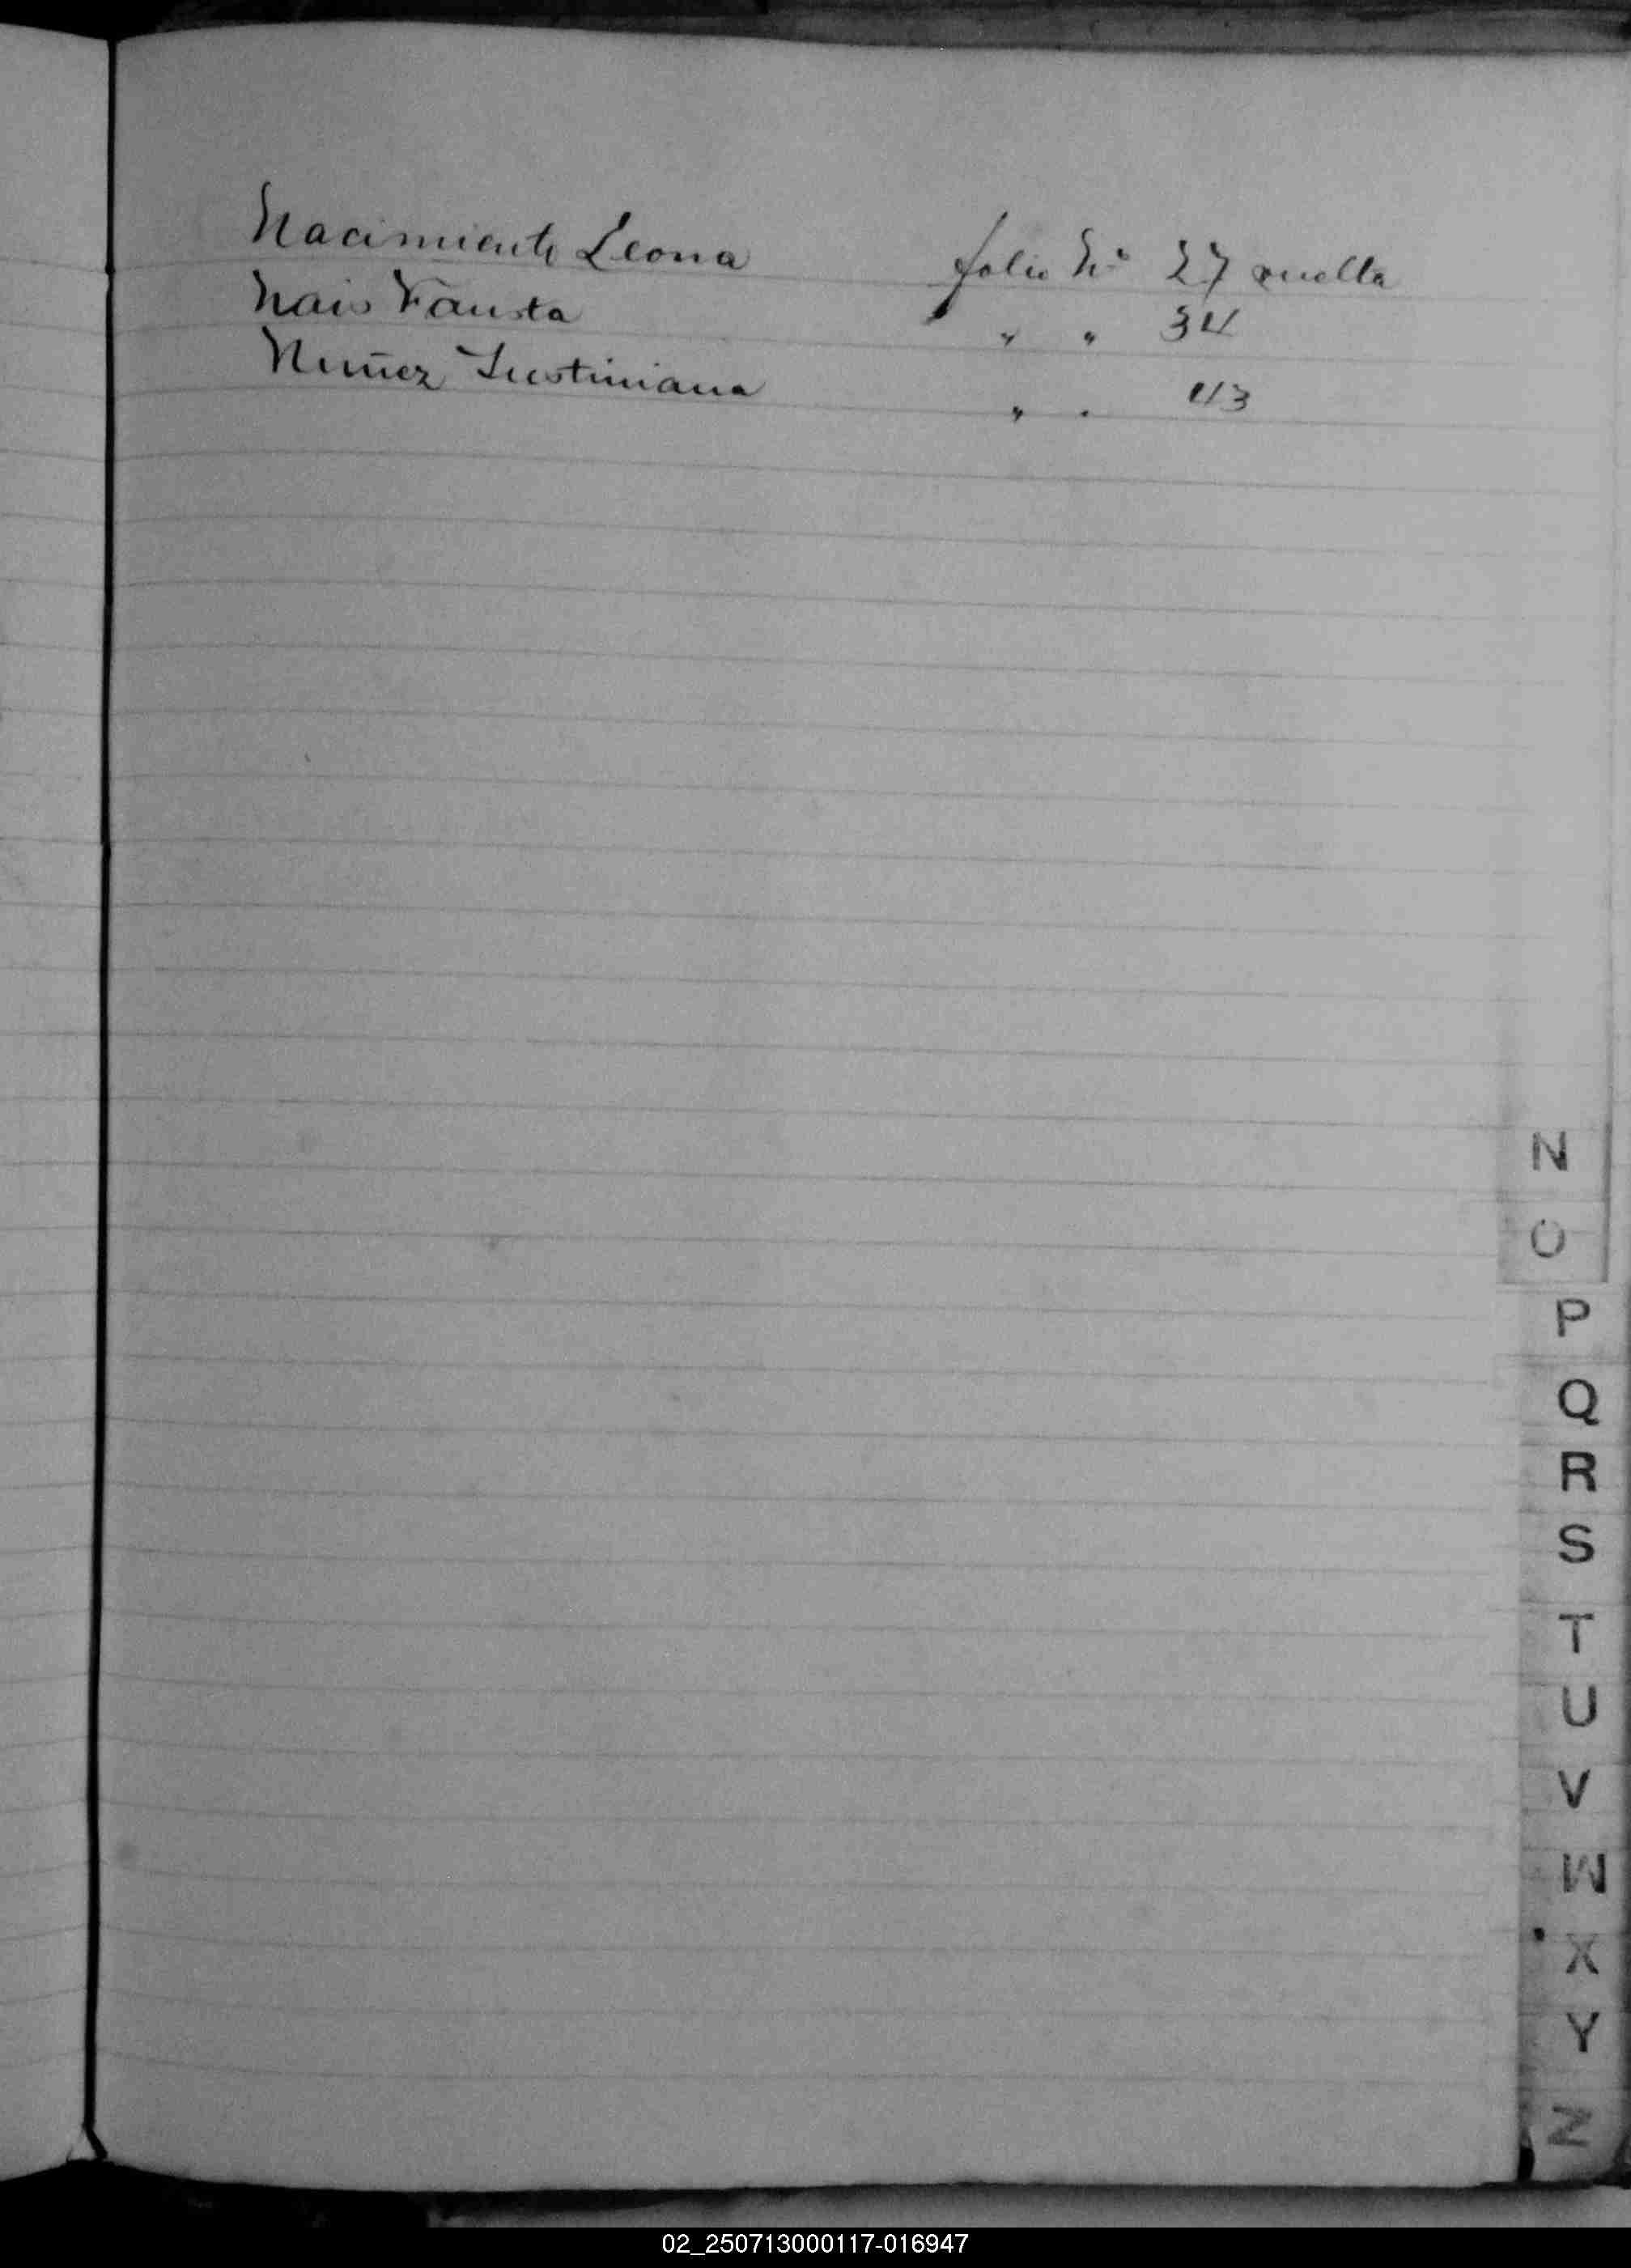 Nacimiento Leona folio Nº 27 vuelta
Nais Fausta " " 34
Nuñez Justiniana " " 43
N
O
P
Q
R
S
T
U
V
W
X
Y
Z
02_250713000117-016947